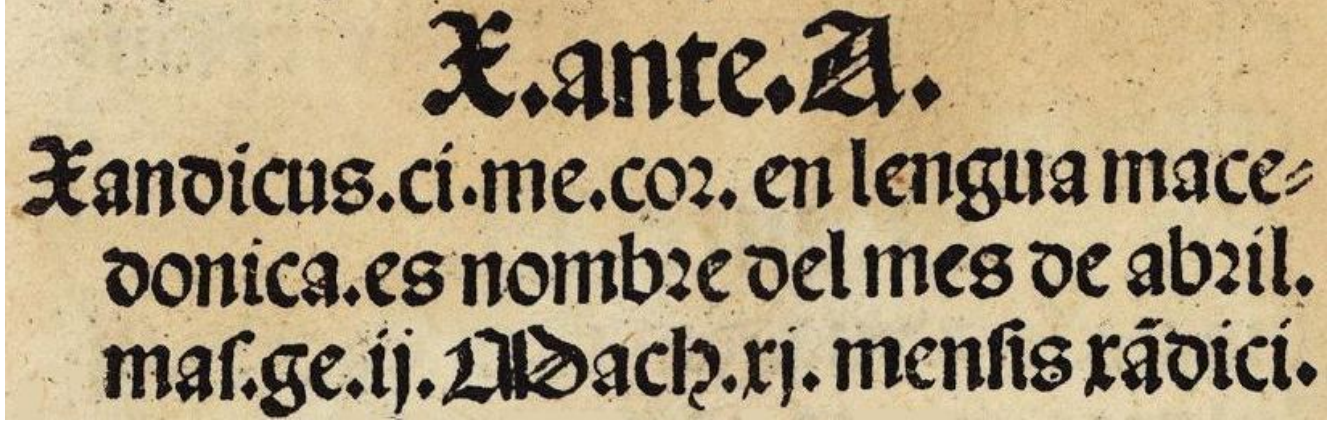 X.ante.A.
Xandicus.ci.me.cor. en lengua mace-
donica.es nombre del mes de abril.
maſ.ge.ij.Mach.xj. menſis xãdici.